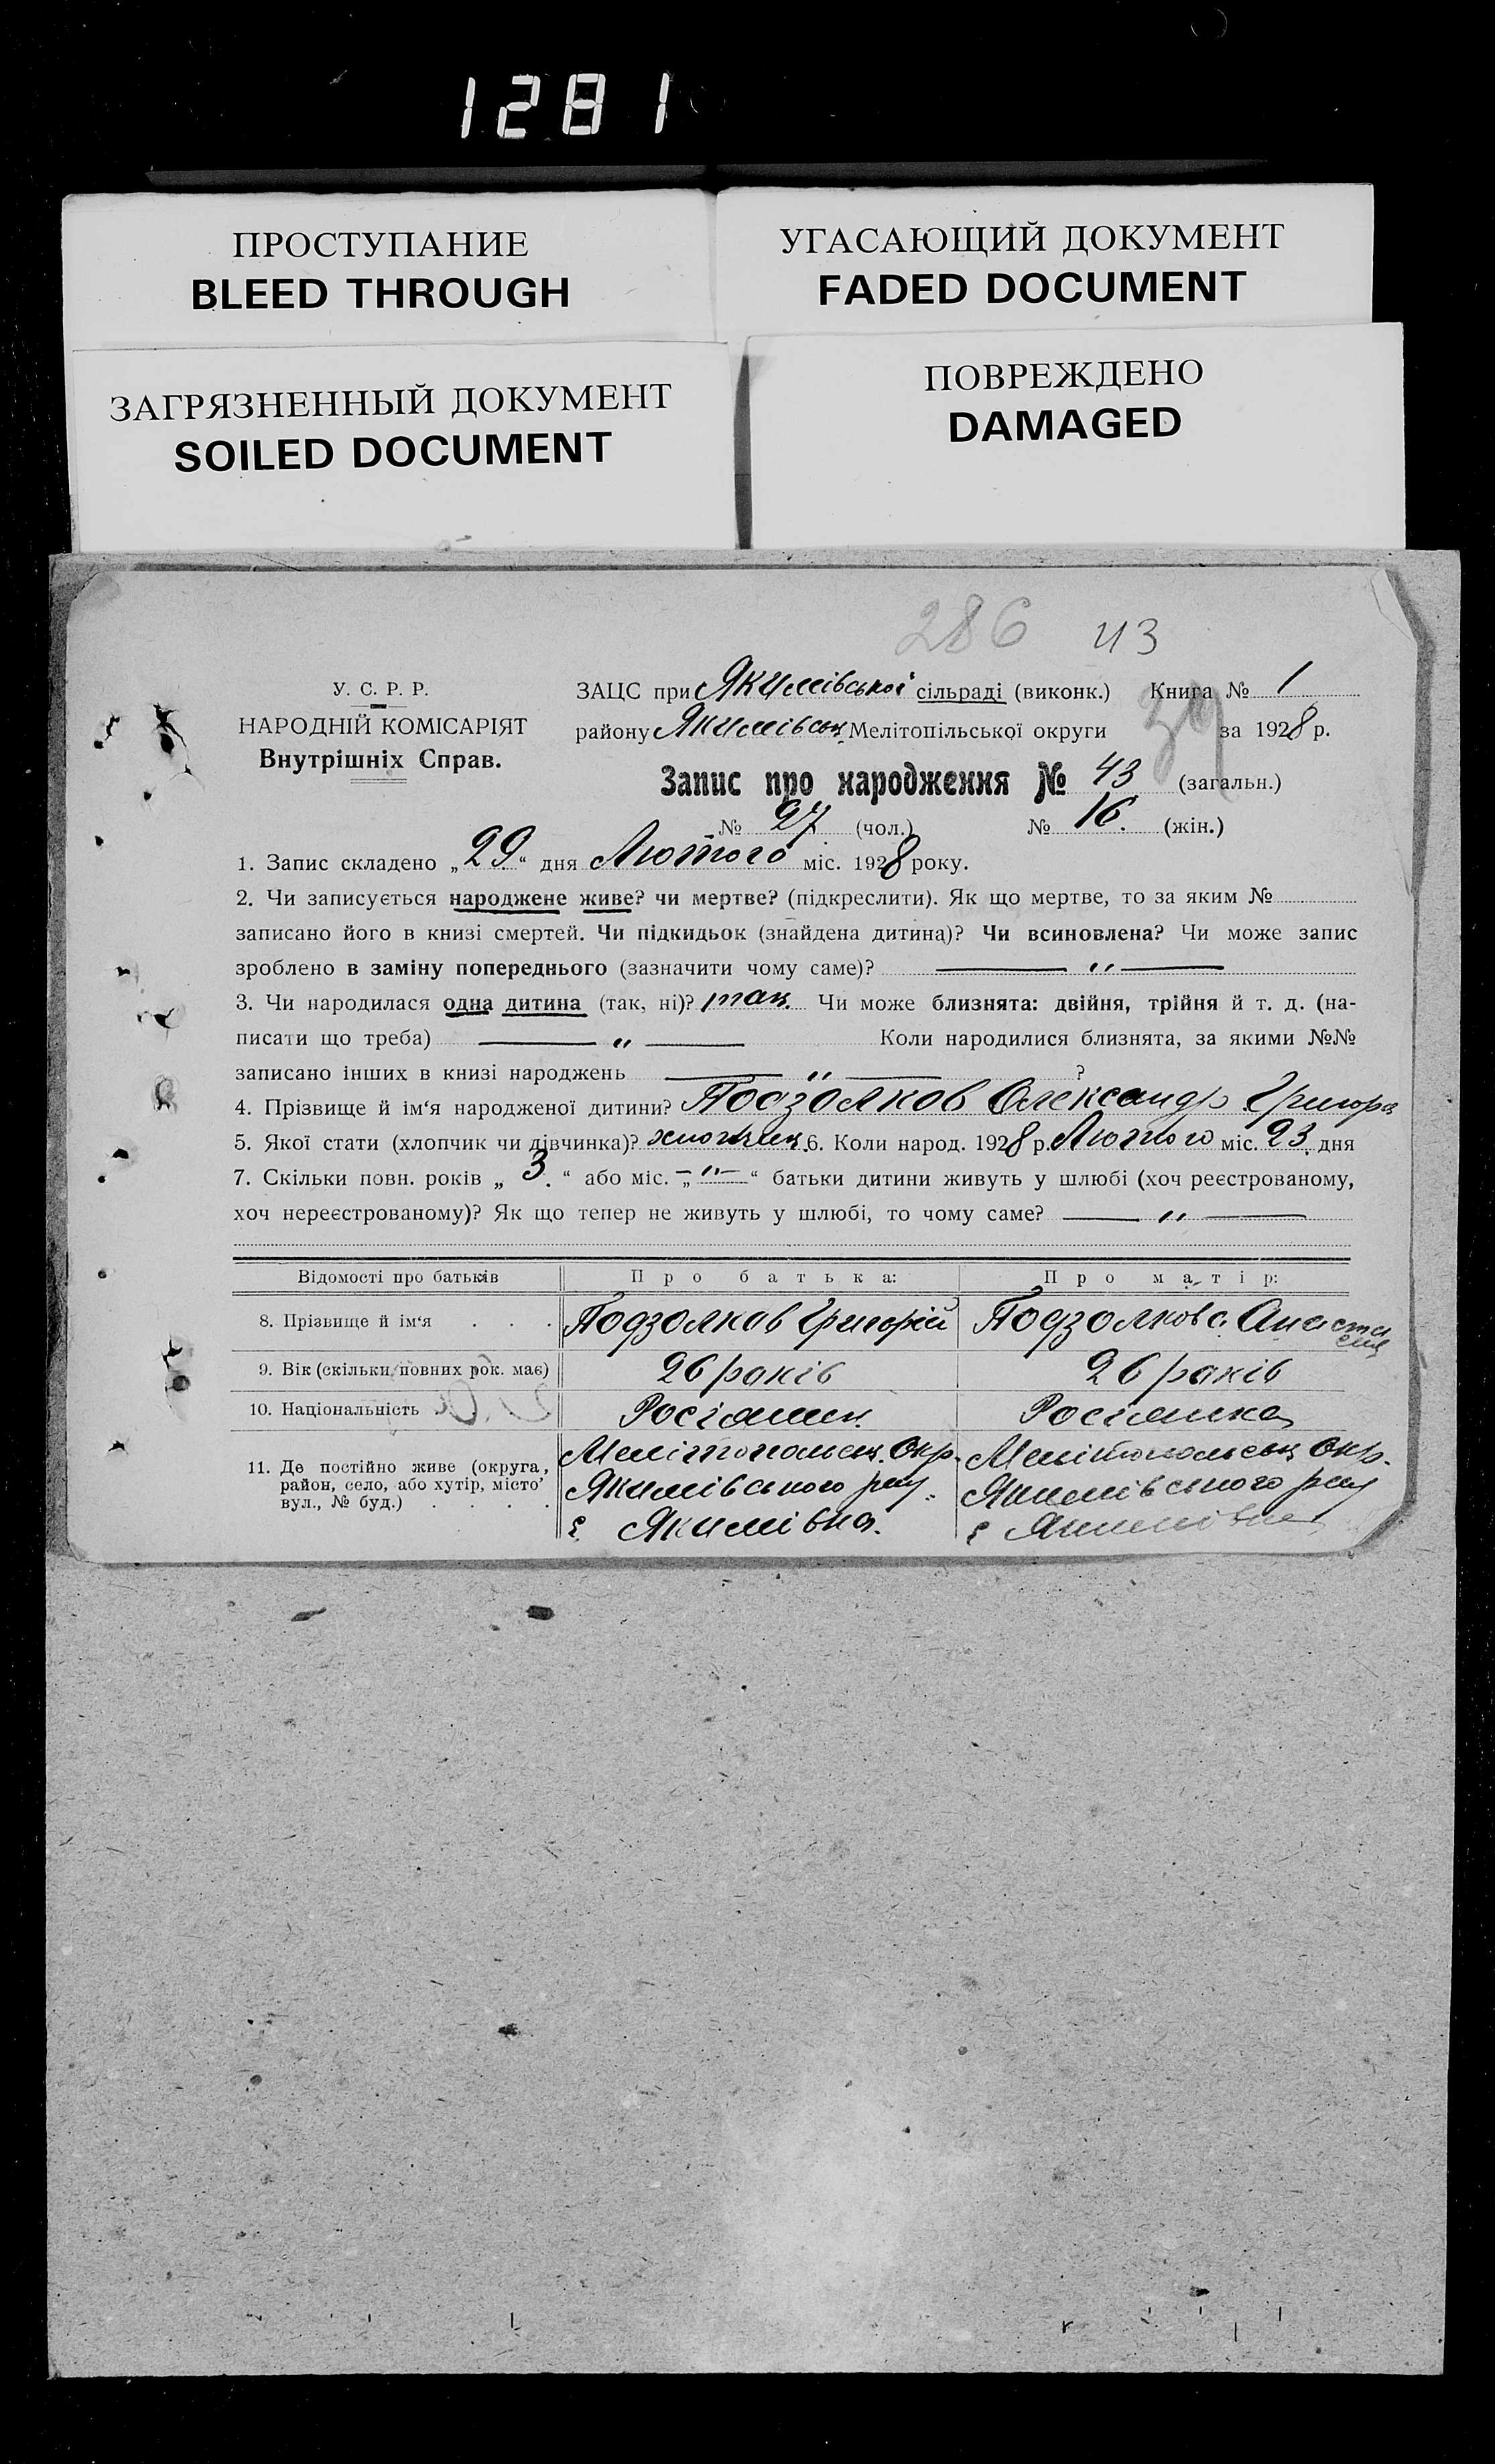 1281
ПРОСТУПАНИЕ
BLEED THROUGH
УГАСАЮЩИЙ ДОКУМЕНТ
FADED DOCUMENT
ЗАГРЯЗНЕННЫЙ ДОКУМЕНТ
SOILED DOCUMENT
ПОВРЕЖДЕНО
DAMAGED
286 43
У. С. Р. Р.
НАРОДНІЙ КОМІСАРІЯТ
Внутрішніх Справ.
ЗАЦС при Якимівської сільраді (виконк.) Книга № 1
району Якимівськ. Мелітопільської округи за 1928 р.
39
Запис про народження № 43 (загальн.)
№ 27 (чол.) № 16. (жін.)
1. Запис складено „29“ дня Лютого міс. 1928 року.
2. Чи записується народжене живе? чи мертве? (підкреслити). Як що мертве, то за яким №
записано його в книзі смертей. Чи підкидьок (знайдена дитина)? Чи всиновлена? Чи може запис
зроблено в заміну попереднього (зазначити чому саме)? — „ —
3. Чи народилася одна дитина (так, ні)? так. Чи може близнята: двійня, трійня й т. д. (на-
писати що треба) — „ — Коли народилися близнята, за якими №№
записано інших в книзі народжень — „ — ?
4. Прізвище й ім‘я народженої дитини? Подзолков Олександр Григорв
5. Якої стати (хлопчик чи дівчинка)? хлопчик. 6. Коли народ. 1928 р. Лютого міс. 23. дня
7. Скільки повн. років „ 3. “ або міс. „ — “ батьки дитини живуть у шлюбі (хоч реєстрованому,
хоч нереєстрованому)? Як що тепер не живуть у шлюбі, то чому саме? — „ —
Відомості про батьків Про батька: Про матір:
8. Прізвище й ім‘я . . . Подзолков Григорій Подзолкова Анастасия
9. Вік (скільки повних рок. має) 26 років 26 років
10. Національність Росіянин Росіянка
11. Де постійно живе (округа, район, село, або хутір, місто вул., № буд.) . . . .
Мелітопольськ. Окр. Мелітопольськ Окр.
Якимівського рай. Якимівського рай
с Якимівка. с Якимівка